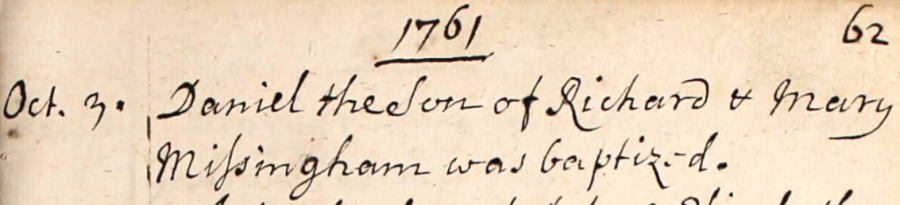 1761 62
Oct. 3. Daniel the Son of Richard & Mary
Miſsingham was baptiz-d.